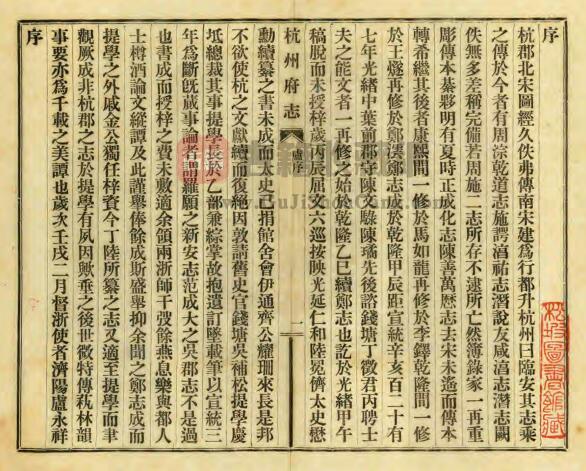 序
杭郡北宋圖經久佚弗傳南宋建為行都升杭州曰臨安其志乘
之傳於今者有周淙乾道志施諤湻祐志潛說友咸湻志潛志闕
佚無多差稱完備若周施二志所存不逮所亡然簿錄家一再重
彫傳本綦夥明有夏時正成化志陳善萬厯志去宋未遙而傳本
轉希繼其後者康熙間一修於馬如龍再修於李鐸乾隆間一修
於王燧再修於鄭澐鄭志成於乾隆甲辰距宣統辛亥百二十有
七年光緒中葉前郡守陳文騄陳璚先後諮錢塘丁徵君丙聘士
夫之能文者一再修之始於乾隆乙巳續鄭志也訖於光緒甲午
稿脫而未授梓歲丙辰屈文六巡按映光延仁和陸冕儕太史懋
杭州府志 盧序 一
勳續纂之書未成而太史又捐館舍會伊通齊公耀珊來長是邦
不欲使杭之文獻續而復絕因敦請舊史官錢塘吳補松提學慶
坻總裁其事提學長於乙部兼綜掌故抱遺訂墜載筆以宣統三
年為斷旣蕆事論者謂羅願之新安志范成大之吳郡志不是過
也書成而授梓之貲未敷適余領兩浙師干弢餘燕息樂與都人
士樽酒論文縱譚及此謹舉俸餘成斯盛舉抑余聞之鄭志成而
提學之外戚金公獨任梓資今丁陸所纂之志又適至提學而聿
觀厥成非杭郡之志於提學有夙因歟垂之後世微特傳萟林韻
事要亦為千載之美譚也歲次壬戌二月督浙使者濟陽盧永祥
序
杭州圖書館藏